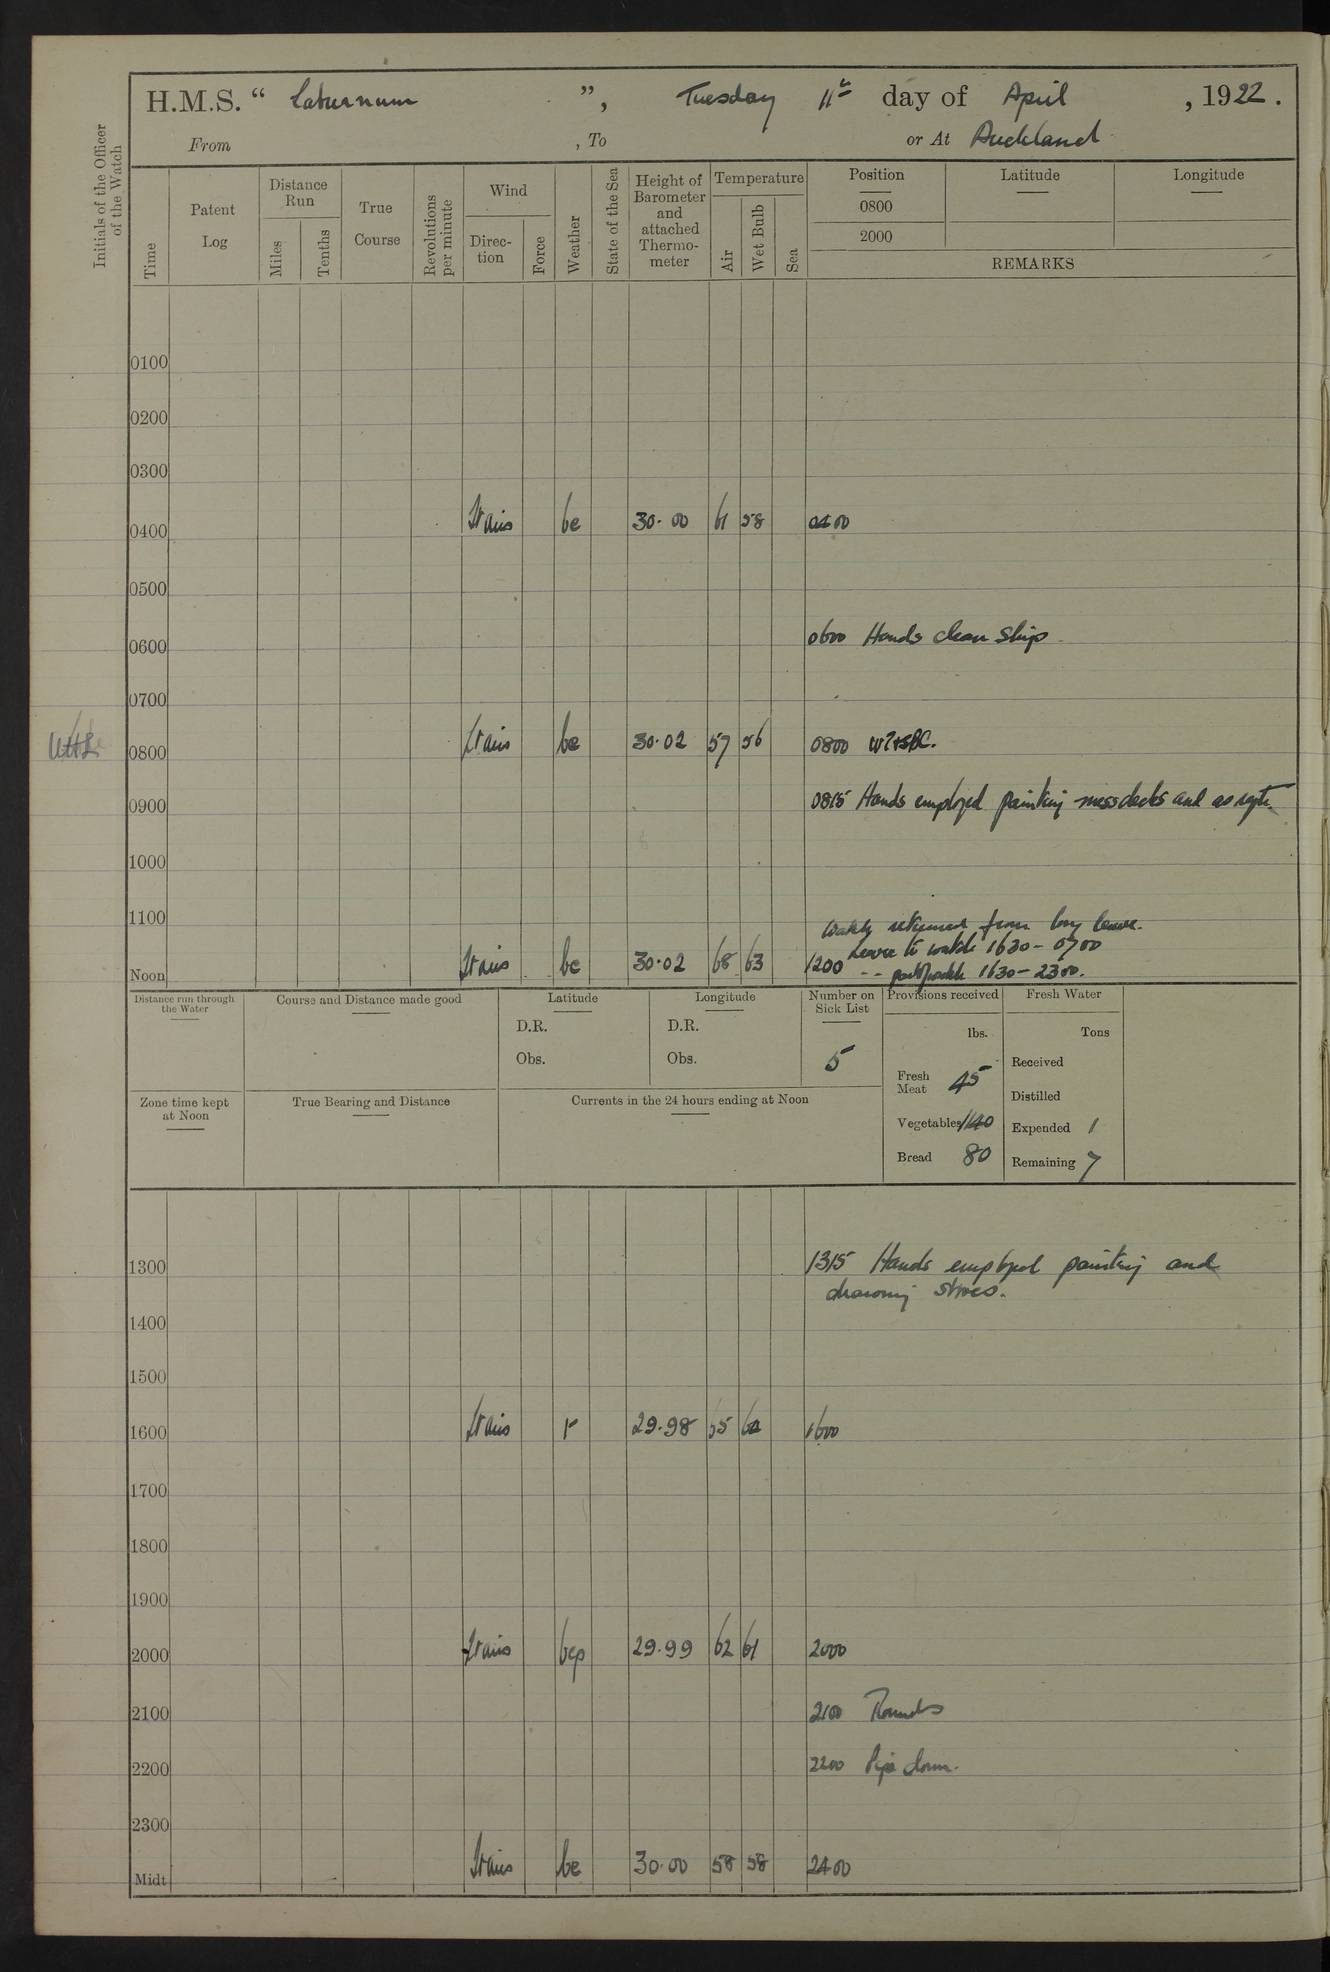 H.M.S. “ Laburnum ”, Tuesday 11th day of April, 1922.
From , To or At Auckland
Initials of the Officer of the Watch
Time
Patent Log
Distance Run
Miles
Tenths
True Course
Revolutions per minute
Wind
Direction
Force
Weather
State of the Sea
Height of Barometer and attached Thermometer
Temperature
Air
Wet Bulb
Sea
Position Latitude Longitude
0800
2000
REMARKS
0100
0200
0300
0400 Strais bc 30.00 61 58 0400
0500
0600 0600 Hands clean ship
0700
0800 Strais bc 30.02 57 56 0800
0900 0815 Hands employed painting messdecks and as reqte.
1000
1100
Watch returned from long leave.
Leave to watch 1630 – 0700
Noon bc 30.02 68 63 1200 -- part watch 1630 – 2300.
Distance run through the Water
Course and Distance made good
Latitude
D.R.
Obs.
Longitude
D.R.
Obs.
Number on Sick List
5
Provisions received
lbs.
Fresh Meat 45
Vegetables 140
Bread 80
Fresh Water
Tons
Received
Distilled
Expended 1
Remaining 7
Zone time kept at Noon
True Bearing and Distance
Currents in the 24 hours ending at Noon
1300 1315 Hands employed painting and
drawing stores.
1400
1500
1600 r 29.98 65 1600
1700
1800
1900
2000 bcp 29.99 62 61 2000
2100 2100 Rounds
2200 2200 Pipe down.
2300
Midt bc 30.00 58 58 2400